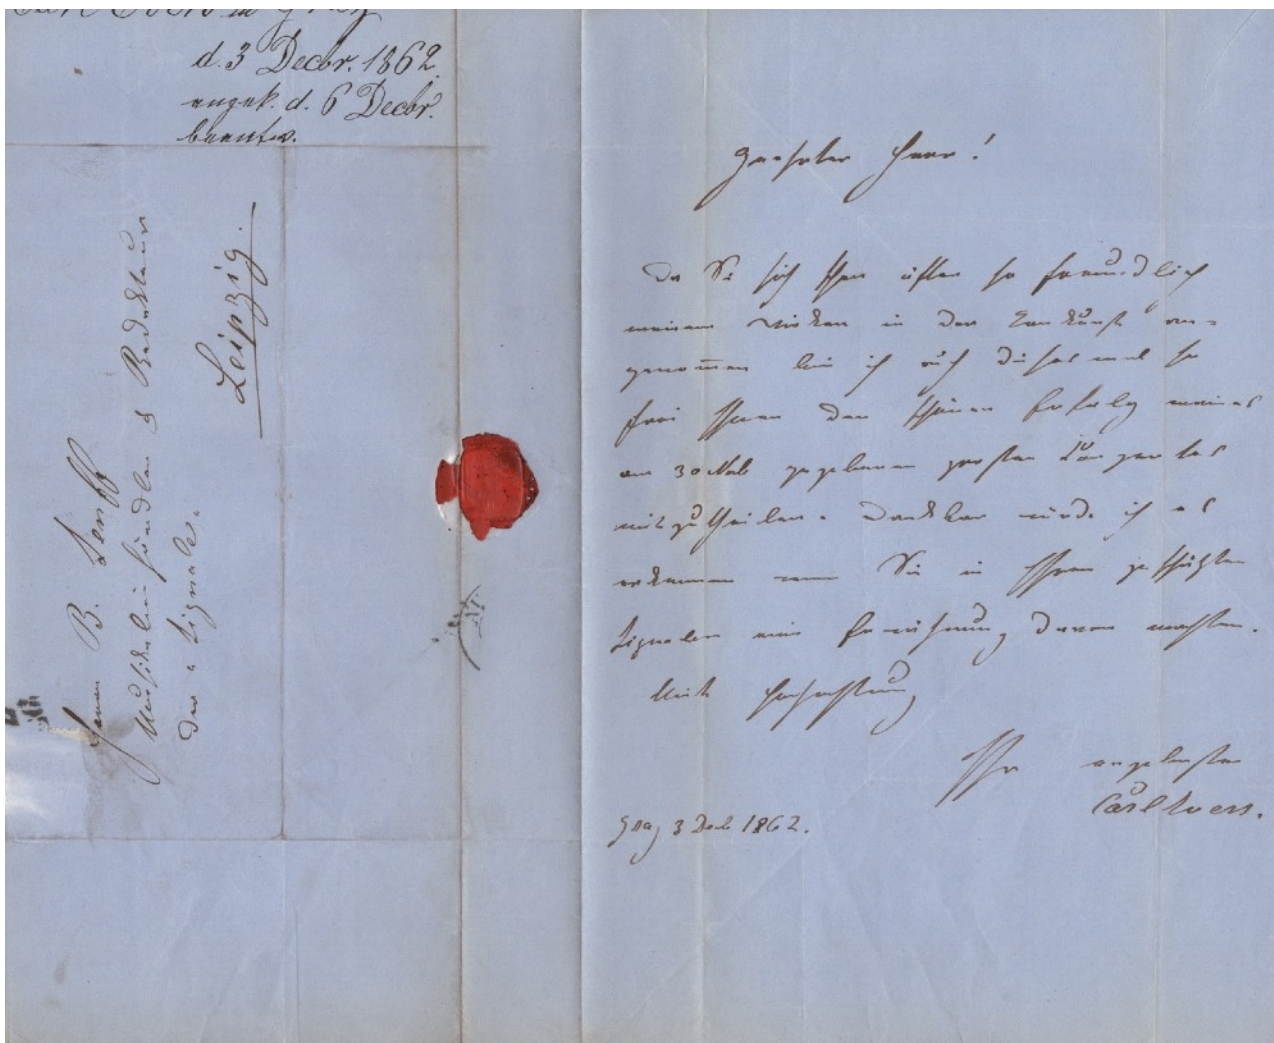 Carl Evers in Graz
d. 3 Decbr. 1862.
angek. d. 6 Decbr.
beantw.
Herrn B. Senff
Musikalienhändler & Redakteur
der „Signale.
Leipzig.
Geehrter Herr!
Da Sie sich schon öfter so freundlich
meinem Wirken in der Tonkunst an-
genom̅en bin ich auch dieses mal so
frei Ihnen den schönen Erfolg meines
am 30 Nob gegebenen großen Conzertes
mitzutheilen. Dankbar würde ich es
erkennen wenn Sie in Ihren geschätzten
Signalen eine Erwähnung davon machten.
Mit Hochachtung
Ihr ergebenster
Carl Evers.
Graz 3 Decb 1862.